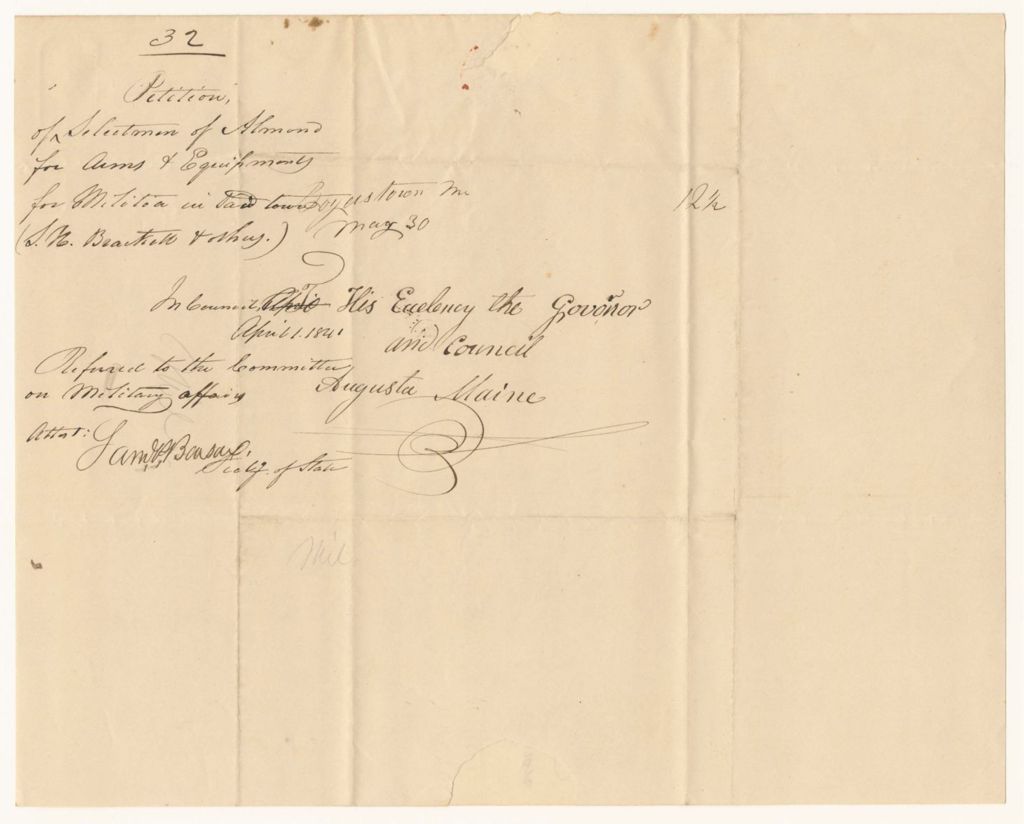 32
Petition,
of Selectmen of Almond
for Arms & Equipments
for Militia in said town
(S. H. Brackett & others.)
town Me
May 30
12 ½
In Council,
April 1. 1841
Referred to the Committee
on Military affairs
Attest:
Saml P. Benson,
Secty. of State
To His Exelency the Govornor
and Council
Augusta Maine
Mil